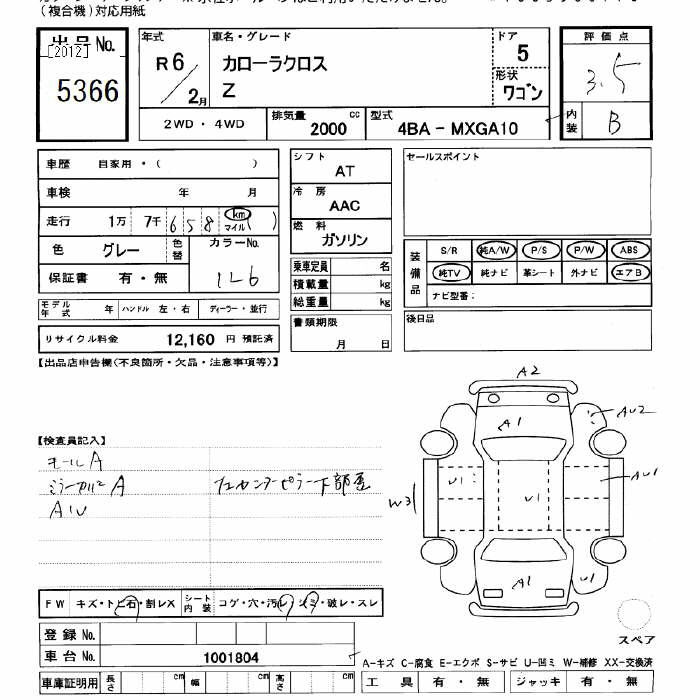 (複合機)対応用紙
出品 No.
[2012]
5366
年式
R 6 / 2月
車名・グレード
カローラクロス
Z
ドア
5
形状
ワゴン
評価点
3.5
内装
B
2WD・4WD
排気量 2000 cc
型式 4BA - MXGA10
車歴 自家用・( )
車検 年 月
走行 1万 7千 6 5 8 km マイル ( )
色 グレー 色替 カラーNo.
保証書 有・無 1L6
モデル年式 年 ハンドル 左・右 ディーラー・並行
リサイクル料金 12,160 円 預託済
シフト
AT
冷房
AAC
燃料
ガソリン
乗車定員 名
積載量 kg
総重量 kg
書類期限
月 日
セールスポイント
装備品
S/R 純A/W P/S P/W ABS
純TV 純ナビ 革シート 外ナビ エアB
ナビ型番:
後日品
【出品店申告欄(不良箇所・欠品・注意事項等)】
【検査員記入】
モール A
ミラーカバー A
AU
センターピラー下部歪
A2
A1
AU2
U1
U1
AU1
W3
A1
U1
FW キズ・トビ石・割レX シート内装 コゲ・穴・汚レ・シミ・破レ・スレ
登録 No.
車台 No. 1001804
スペア
A-キズ C-腐食 E-エクボ S-サビ U-凹ミ W-補修 XX-交換済
車庫証明用 長さ cm 幅 cm 高さ cm
工具 有・無 ジャッキ 有・無